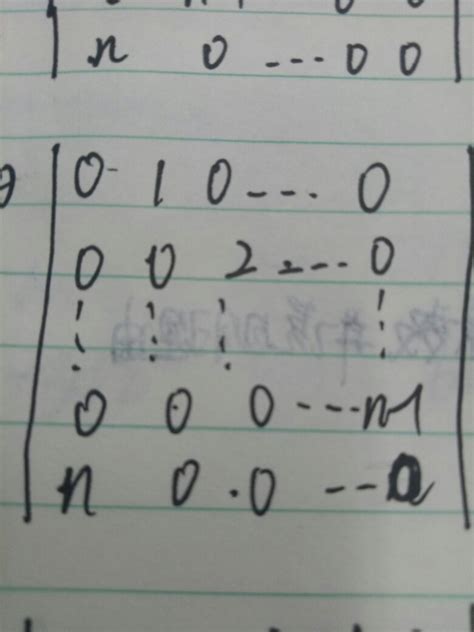 n 0 ... 0 0
0 1 0 ... 0
0 0 2 ... 0
⋮ ⋮ ⋮ ⋮
0 0 0 ... n-1
n 0 0 ... 0